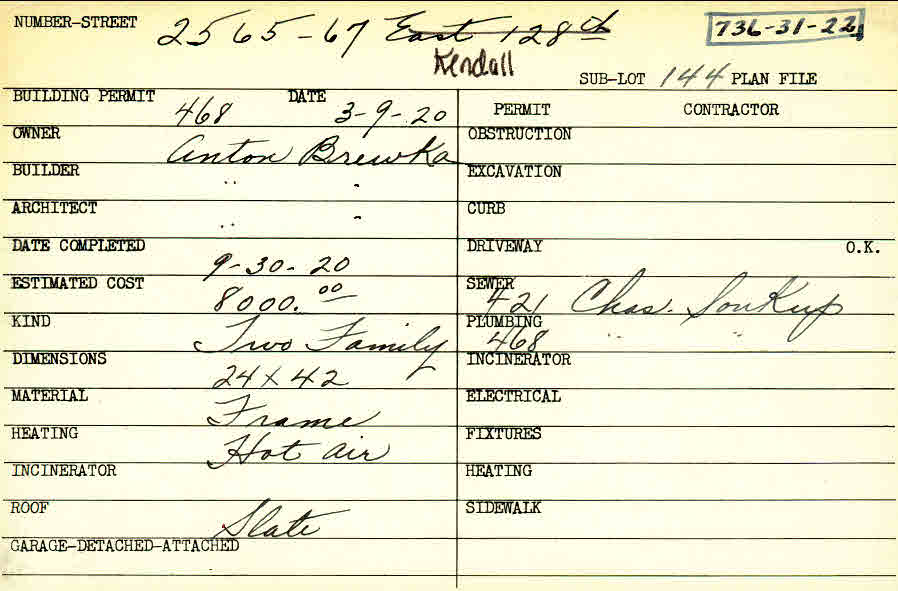 NUMBER-STREET 2565-67 East 128th 736-31-22
Kendall
SUB-LOT 144 PLAN FILE
BUILDING PERMIT 468 DATE 3-9-20
PERMIT CONTRACTOR
OWNER Anton Brewka
OBSTRUCTION
BUILDER " "
EXCAVATION
ARCHITECT " "
CURB
DATE COMPLETED 9-30-20
DRIVEWAY O.K.
ESTIMATED COST 8000.00
SEWER 421 Chas. Soukup
KIND Two Family
PLUMBING 468 " "
DIMENSIONS 24 x 42
INCINERATOR
MATERIAL Frame
ELECTRICAL
HEATING Hot air
FIXTURES
INCINERATOR
HEATING
ROOF Slate
SIDEWALK
GARAGE-DETACHED-ATTACHED